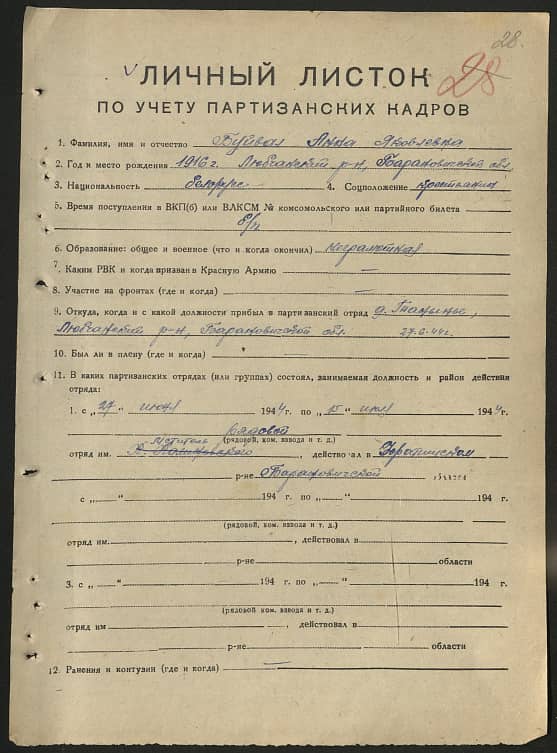 28.
28
ЛИЧНЫЙ ЛИСТОК
ПО УЧЕТУ ПАРТИЗАНСКИХ КАДРОВ
1. Фамилия, имя и отчество Буйвал Анна Яковлевна
2. Год и место рождения 1916 г. Любчанский р-н, Барановичской обл.
3. Национальность белорус 4. Соцположение крестьянин
5. Время поступления в ВКП(б) или ВЛКСМ № комсомольского или партийного билета
б/п
6. Образование: общее и военное (что и когда окончил) неграмотная
7. Каким РВК и когда призван в Красную Армию —
8. Участие на фронтах (где и когда) —
9. Откуда, когда и с какой должности прибыл в партизанский отряд д.
Любчанский р-н, Барановичской обл. 27.6.44 г.
10. Был ли в плену (где и когда) —
11. В каких партизанских отрядах (или группах) состоял, занимаемая должность и район действия
отряда:
1. с „27“ июня 1944 г. по „15“ июля 1944 г.
рядовой
мститель (рядовой, ком. взвода и т. д.)
отряд им. , действовал в
р-не Барановичской области
с „—“ 194 г. по „—“ 194 г.
(рядовой, ком. взвода и т. д.)
отряд им. , действовал в
р-не области
3. с „—“ 194 г. по „—“ 194 г.
(рядовой, ком. взвода и т. д.)
отряд им , действовал в
р-не области
12. Ранения и контузии (где и когда) —